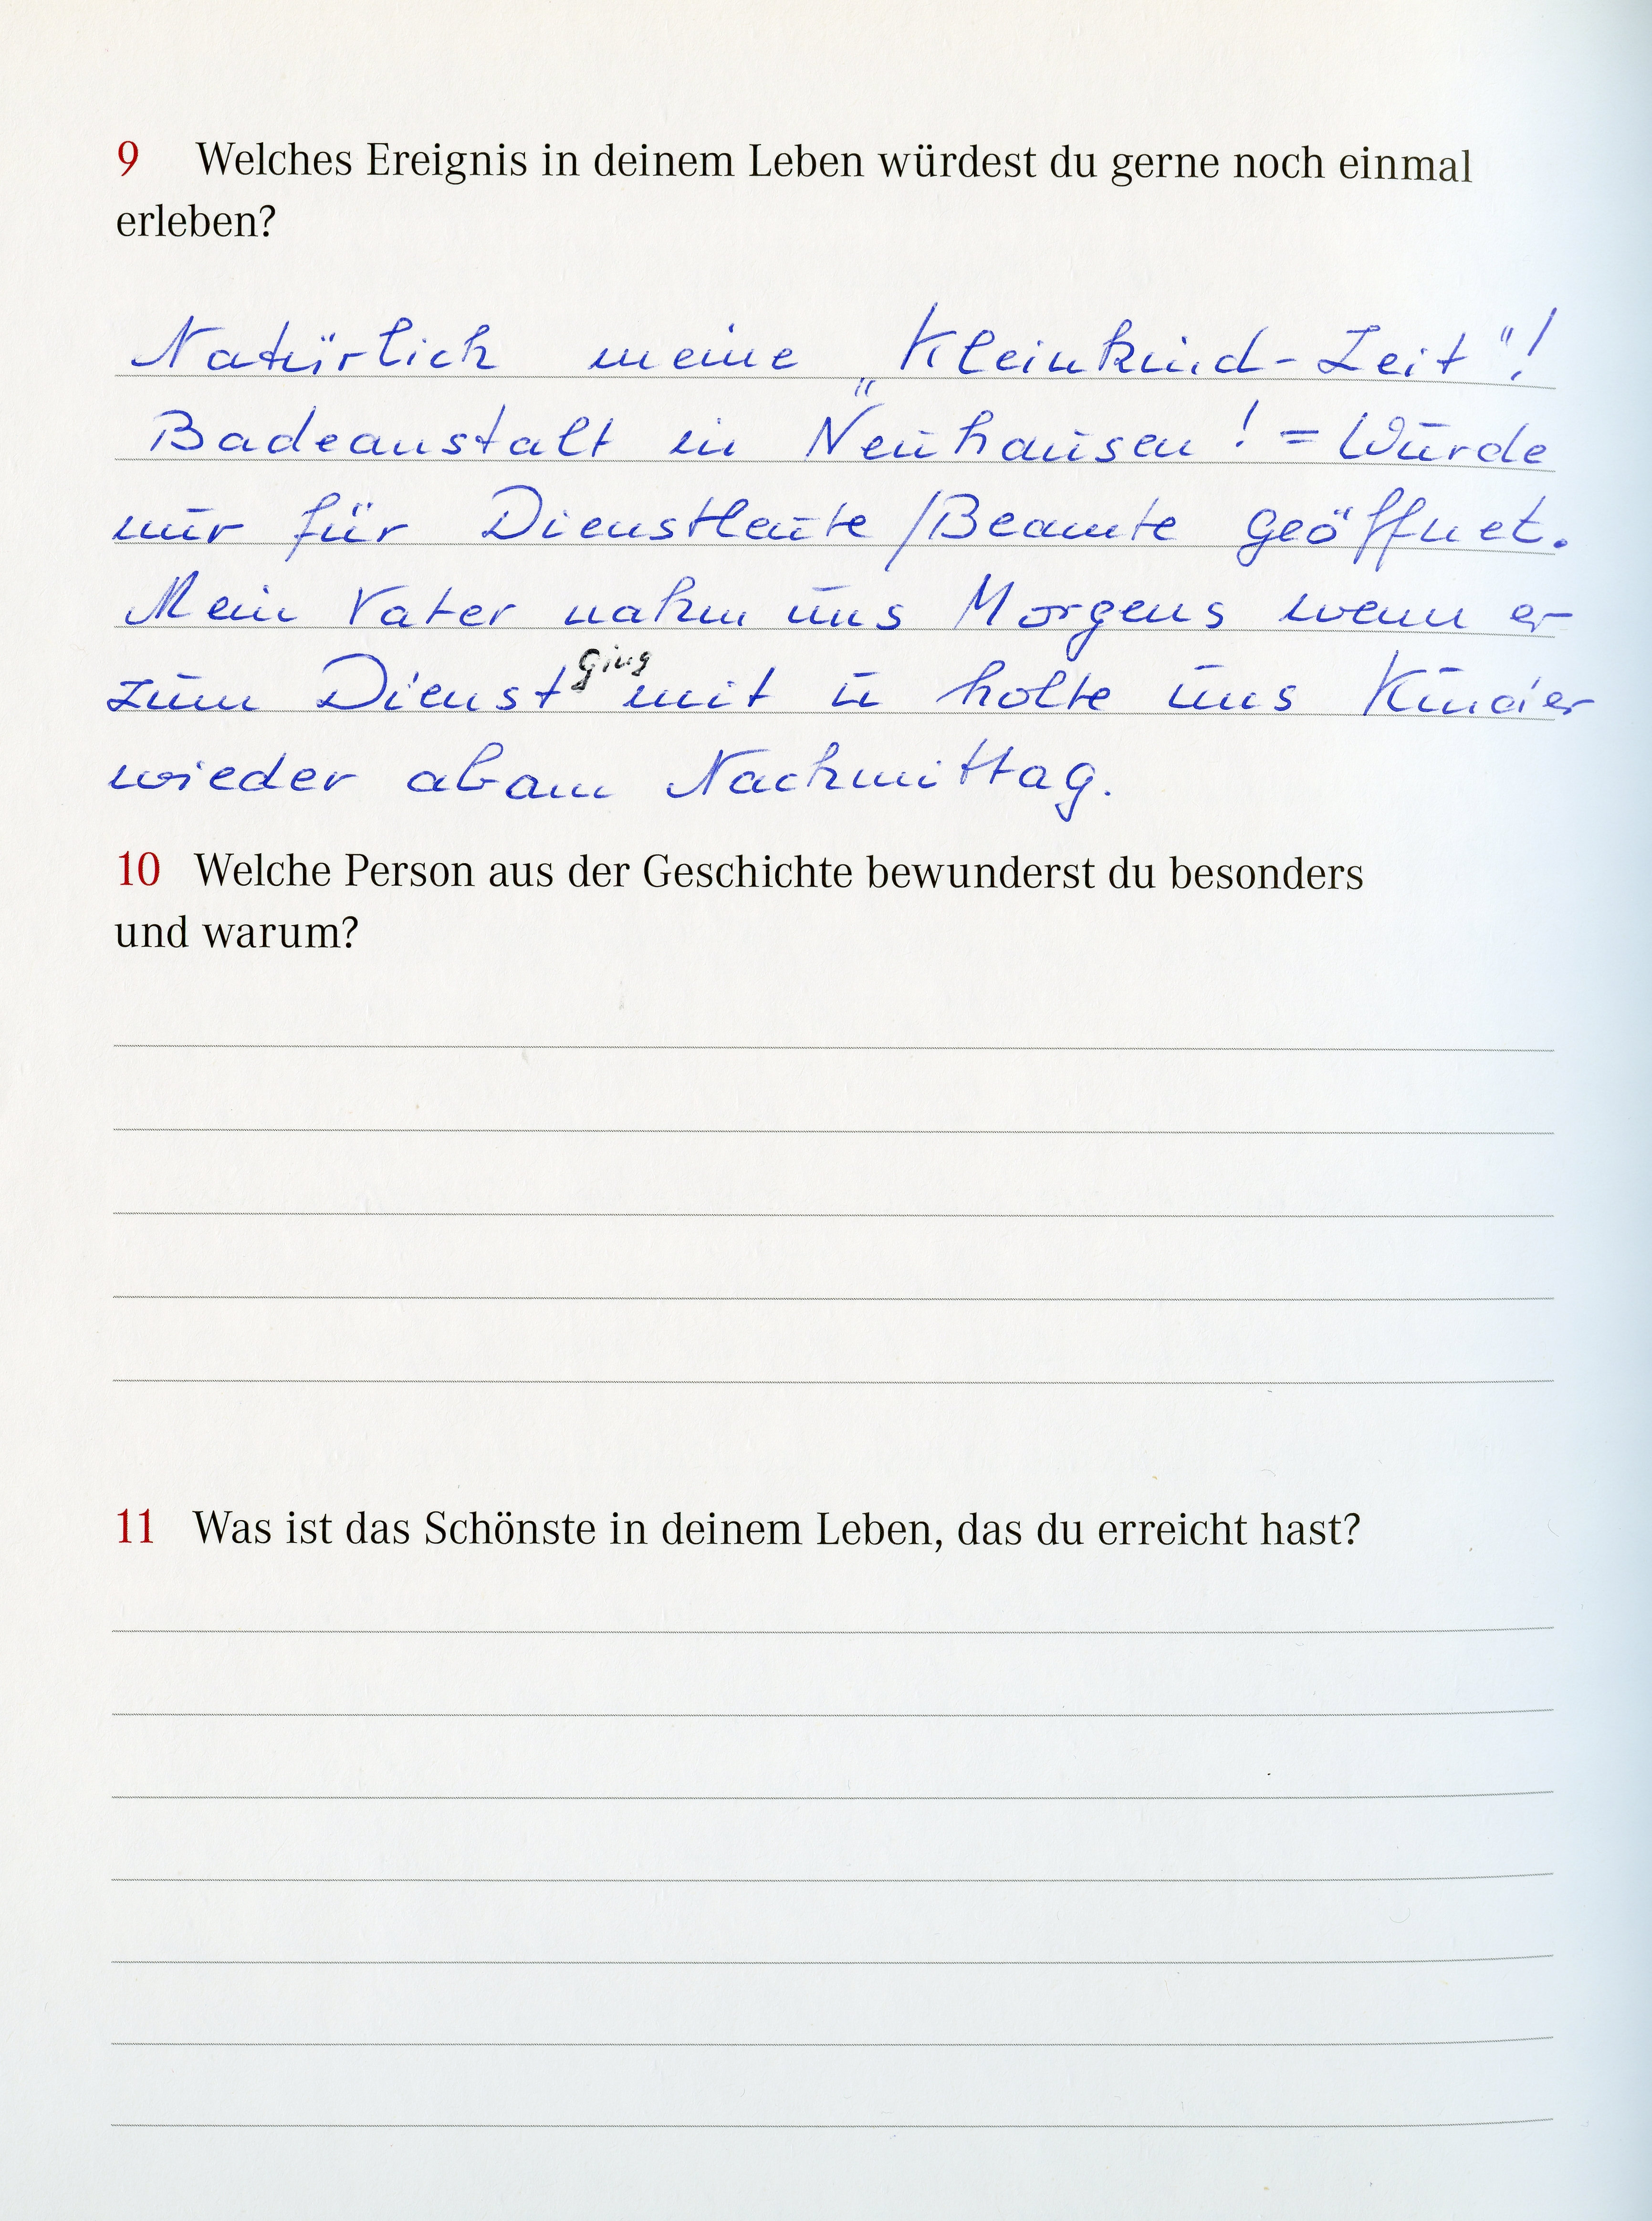 9 Welches Ereignis in deinem Leben würdest du gerne noch einmal
erleben?
Natürlich meine „Kleinkind-Zeit"!
Badeanstalt in Neuhausen! = Wurde
nur für Dienstleute/Beamte geöffnet.
Mein Vater nahm uns Morgens wenn er
zum Dienst ging mit u holte uns Kinder
wieder ab am Nachmittag.
10 Welche Person aus der Geschichte bewunderst du besonders
und warum?
11 Was ist das Schönste in deinem Leben, das du erreicht hast?